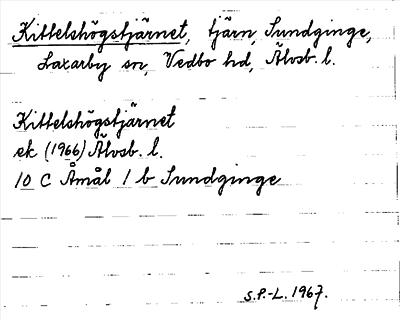 Kittelshögstjärnet, tjärn, Sundginge,
Laxarby sn, Vedbo hd, Älvsb. l.
Kittelshögstjärnet
ek (1966) Älvsb. l.
10 C Åmål 1 b Sundginge
S.P.-L. 1967.